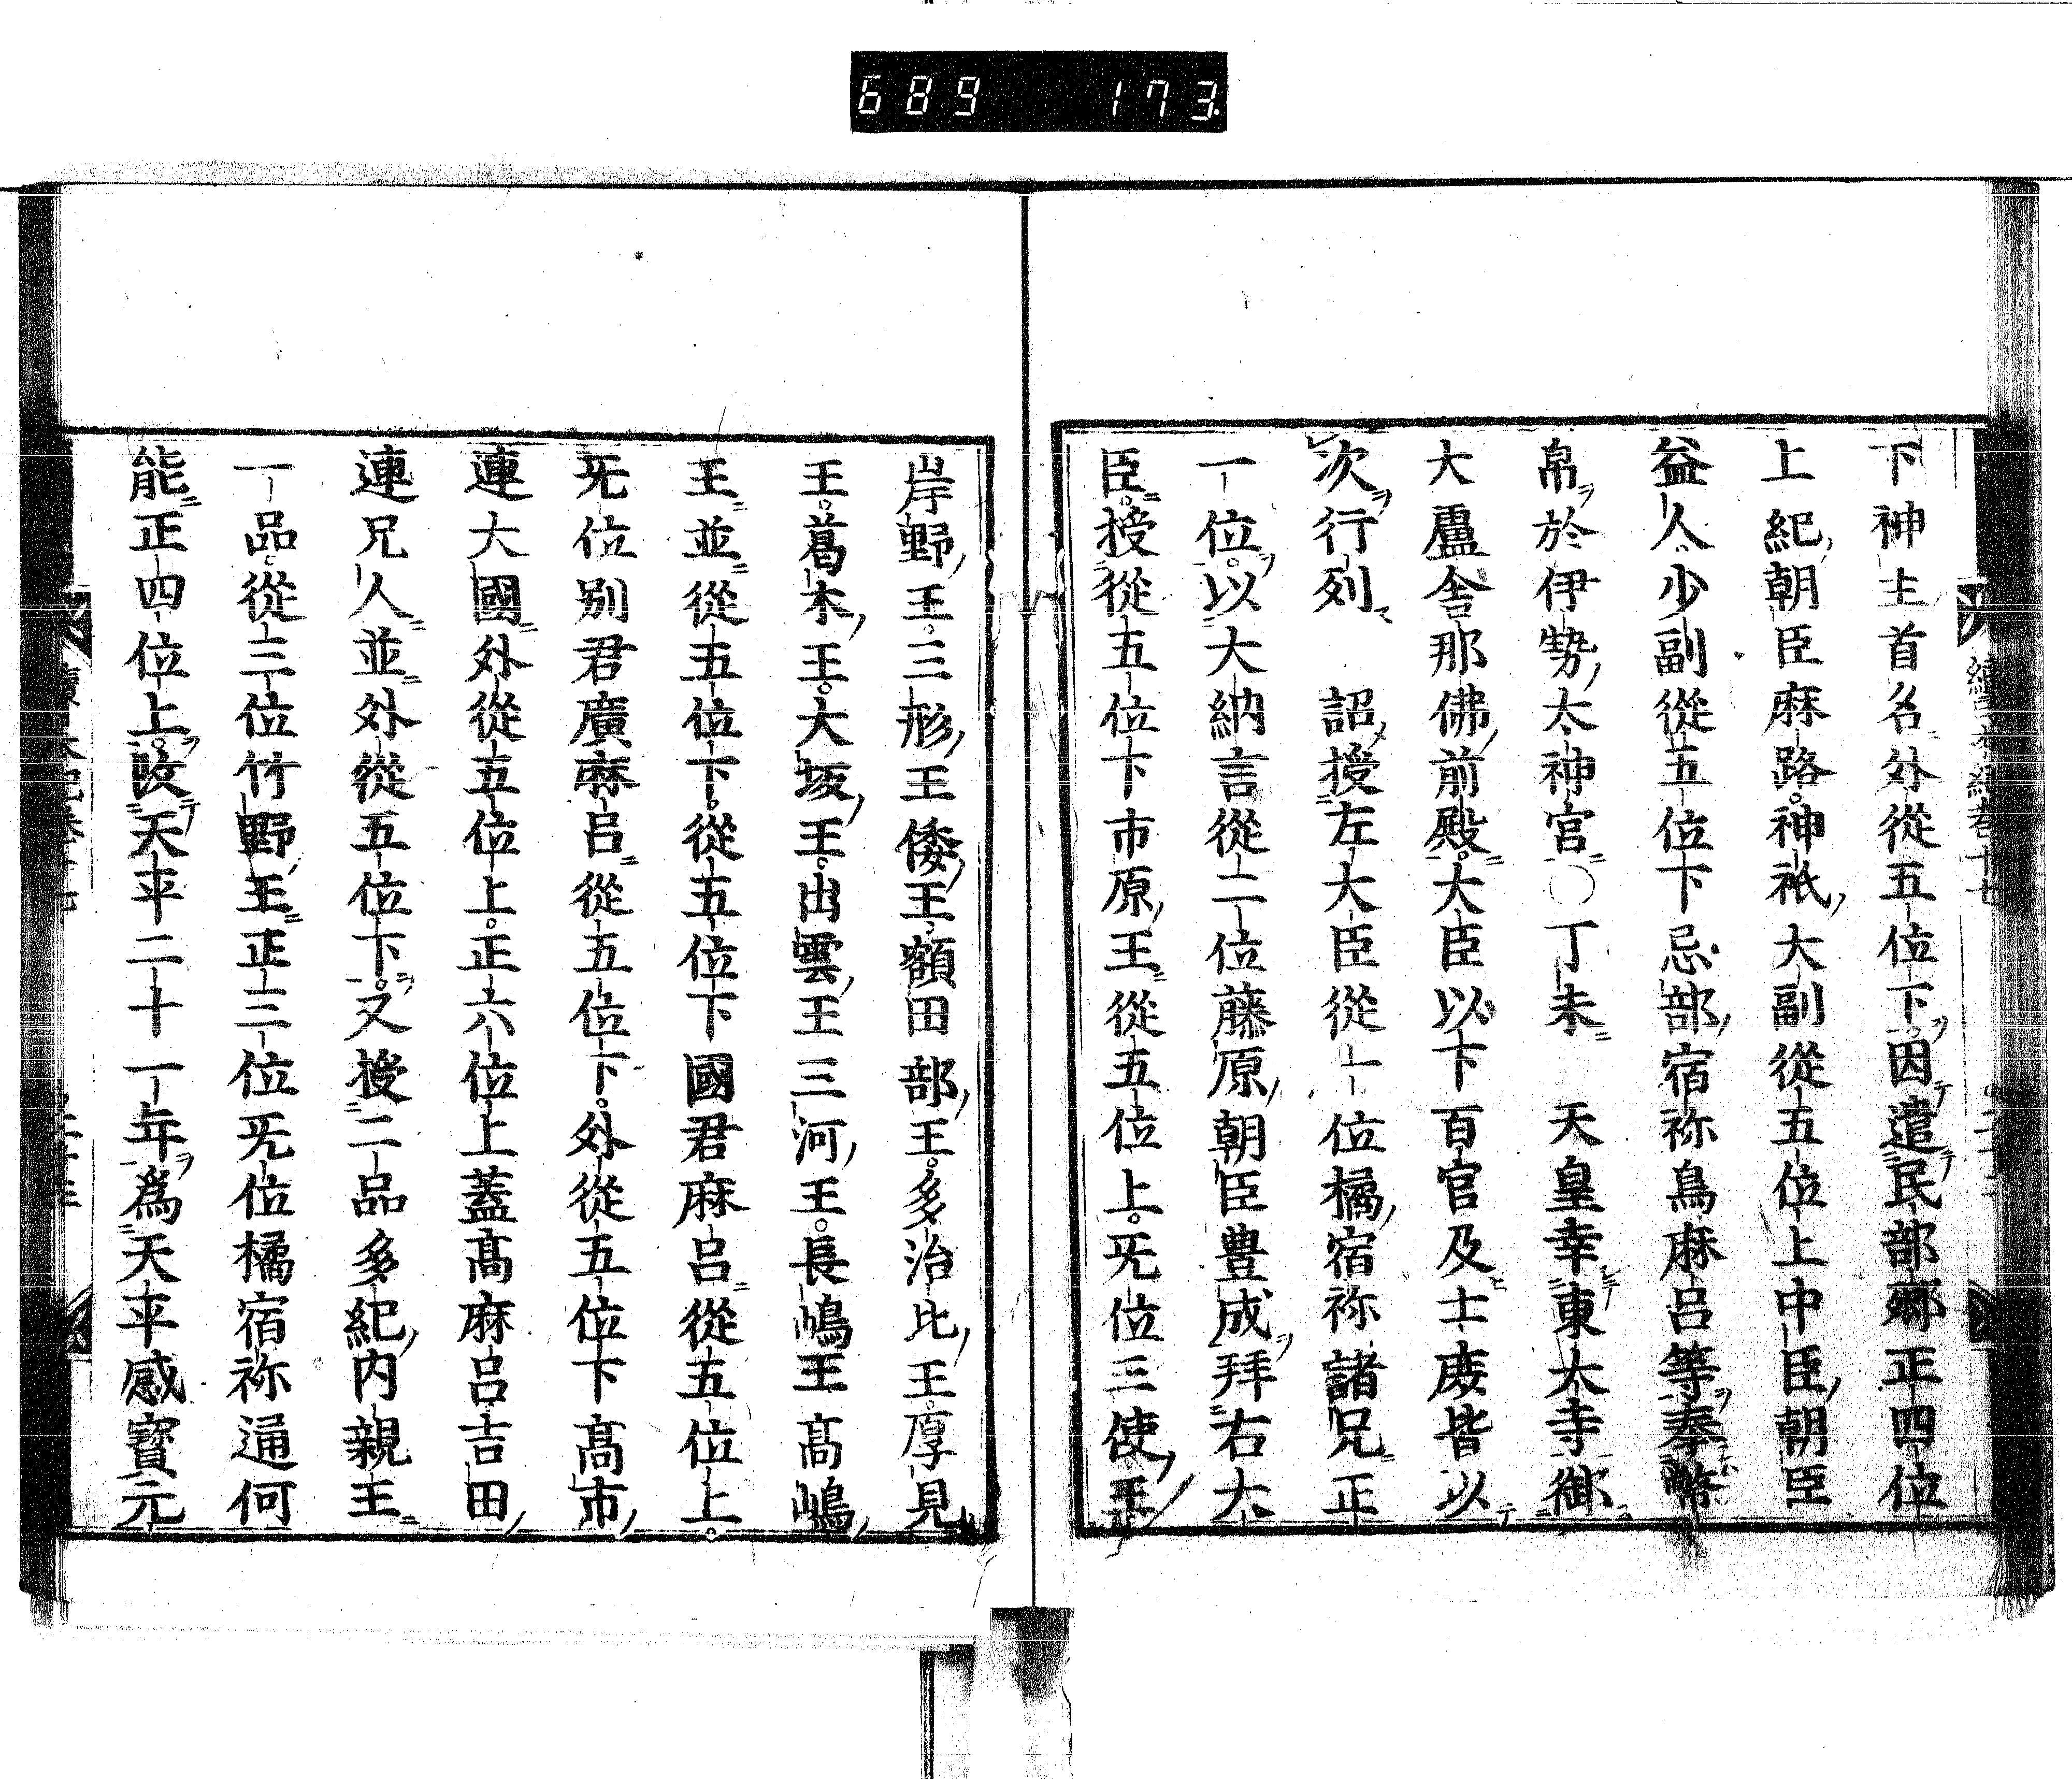 689 173
下神主首名外從五位下因遣民部卿正四位
上紀朝臣麻路神祇大副從五位上中臣朝臣
益人少副從五位下忌部宿祢鳥麻呂等奉幣
帛於伊勢太神宮○丁未 天皇幸東大寺御
大盧舎那佛前殿大臣以下百官及士庻皆以
次行列 詔授左大臣從一位橘宿祢諸兄正
一位以大納言從二位藤原朝臣豊成拜右大
臣授從五位下市原王從五位上旡位三使王
岸野王三形王倭王額田部王多治比王厚見
王葛木王大坂王出雲王三河王長嶋王高嶋
王並從五位下從五位下國君麻呂從五位上
旡位別君廣麻呂從五位下外從五位下髙市
連大國外從五位上正六位上蓋髙麻呂吉田
連兄人並外從五位下又授二品多紀内親王
一品從三位竹野王正三位旡位橘宿祢通何
能正四位上改天平二十一年爲天平感寳元